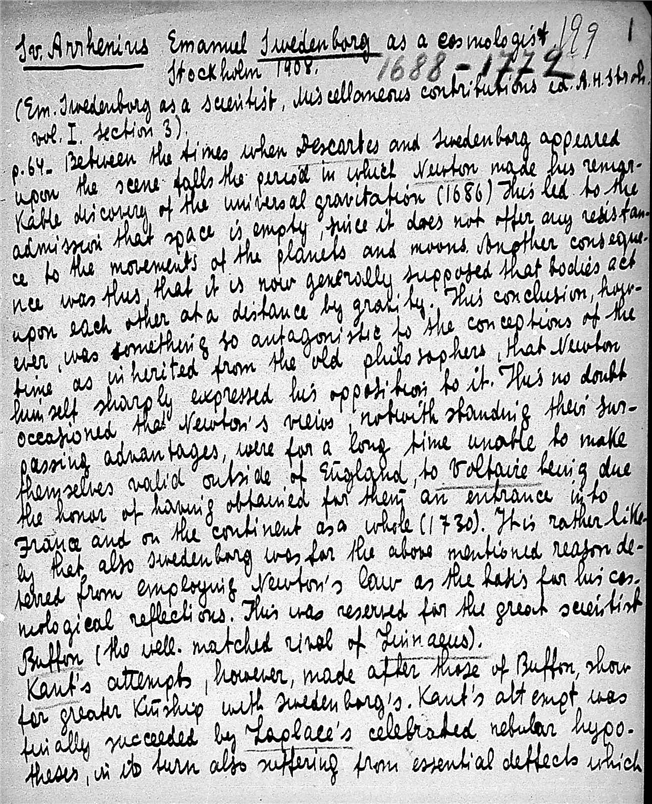 199 1
Sv. Arrhenius Emanuel Swedenborg as a cosmologist
Stockholm 1908. 1688-1772
(Em. Swedenborg as a scientist, Miscellaneous contributions ed. A.H. Stroh.
vol. I. section 3).
p.64- Between the times when Descartes and Swedenborg appeared
upon the scene falls the period in which Newton made his remar-
kable discovery of the universal gravitation (1686) This led to the
admission that space is empty, since it does not offer any resistan-
ce to the movements of the planets and moons. Another conseque-
nce was thus, that it is now generally supposed that bodies act
upon each other at a distance by gravity. This conclusion, how-
ever, was something so antagonistic to the conceptions of the
time as inherited from the old philosophers, that Newton
himself sharply expressed his opposition to it. This no doubt
occasioned that Newton's views, notwithstanding their sur-
passing advantages, were for a long time unable to make
themselves valid outside of England, to Voltaire being due
the honor of having obtained for them an entrance into
France and on the continent as a whole (1730). It is rather like-
ly that also Swedenborg was for the above mentioned reason de-
terred from employing Newton's law as the basis for his cos-
mological reflections. This was reserved for the great scientist
Buffon (the well. matched rival of Linnaeus).
Kant's attempts, however, made after those of Buffon, show
far greater kinship with Swedenborg's. Kant's attempt was
finally succeeded by Laplace's celebrated nebular hypo-
theses, in its turn also suffering from essential deffects which